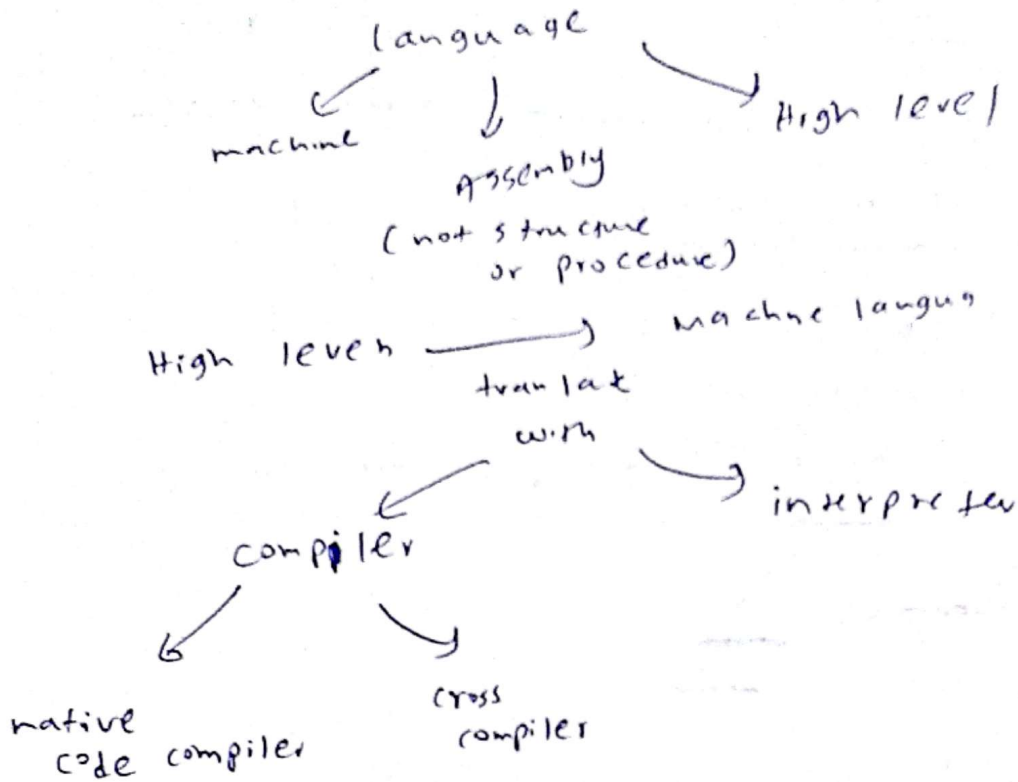 language
machine
High level
Assembly
(not structure
or procedure)
High leven
machne langua
tranlat
with
compiler
interpreter
native
code compiler
cross
compiler